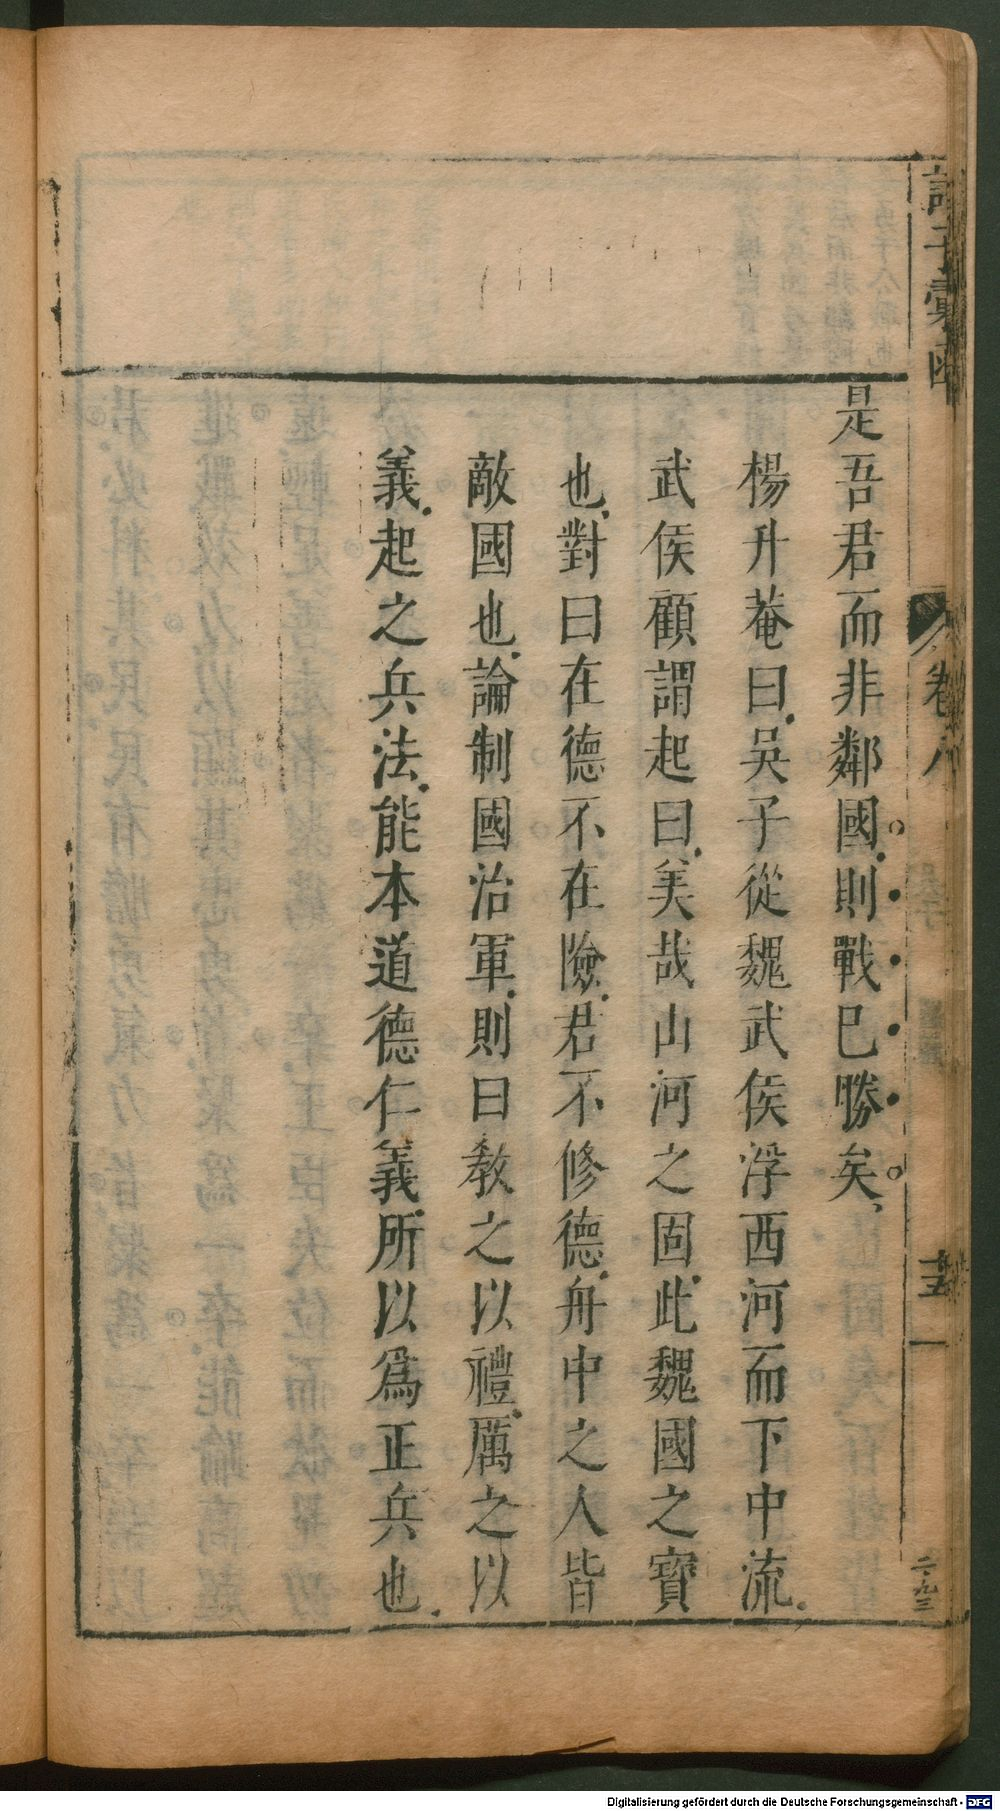 諸子彙函
卷八
十五
二九三
是吾君而非鄰國則戰已勝矣
楊升菴曰吳子從魏武侯浮西河而下中流
武侯顧謂起曰美哉山河之固此魏國之寶
也對曰在德不在險君不修德舟中之人皆
敵國也論制國治軍則曰教之以禮厲之以
義起之兵法能本道德仁義所以為正兵也
Digitalisierung gefördert durch die Deutsche Forschungsgemeinschaft - DFG